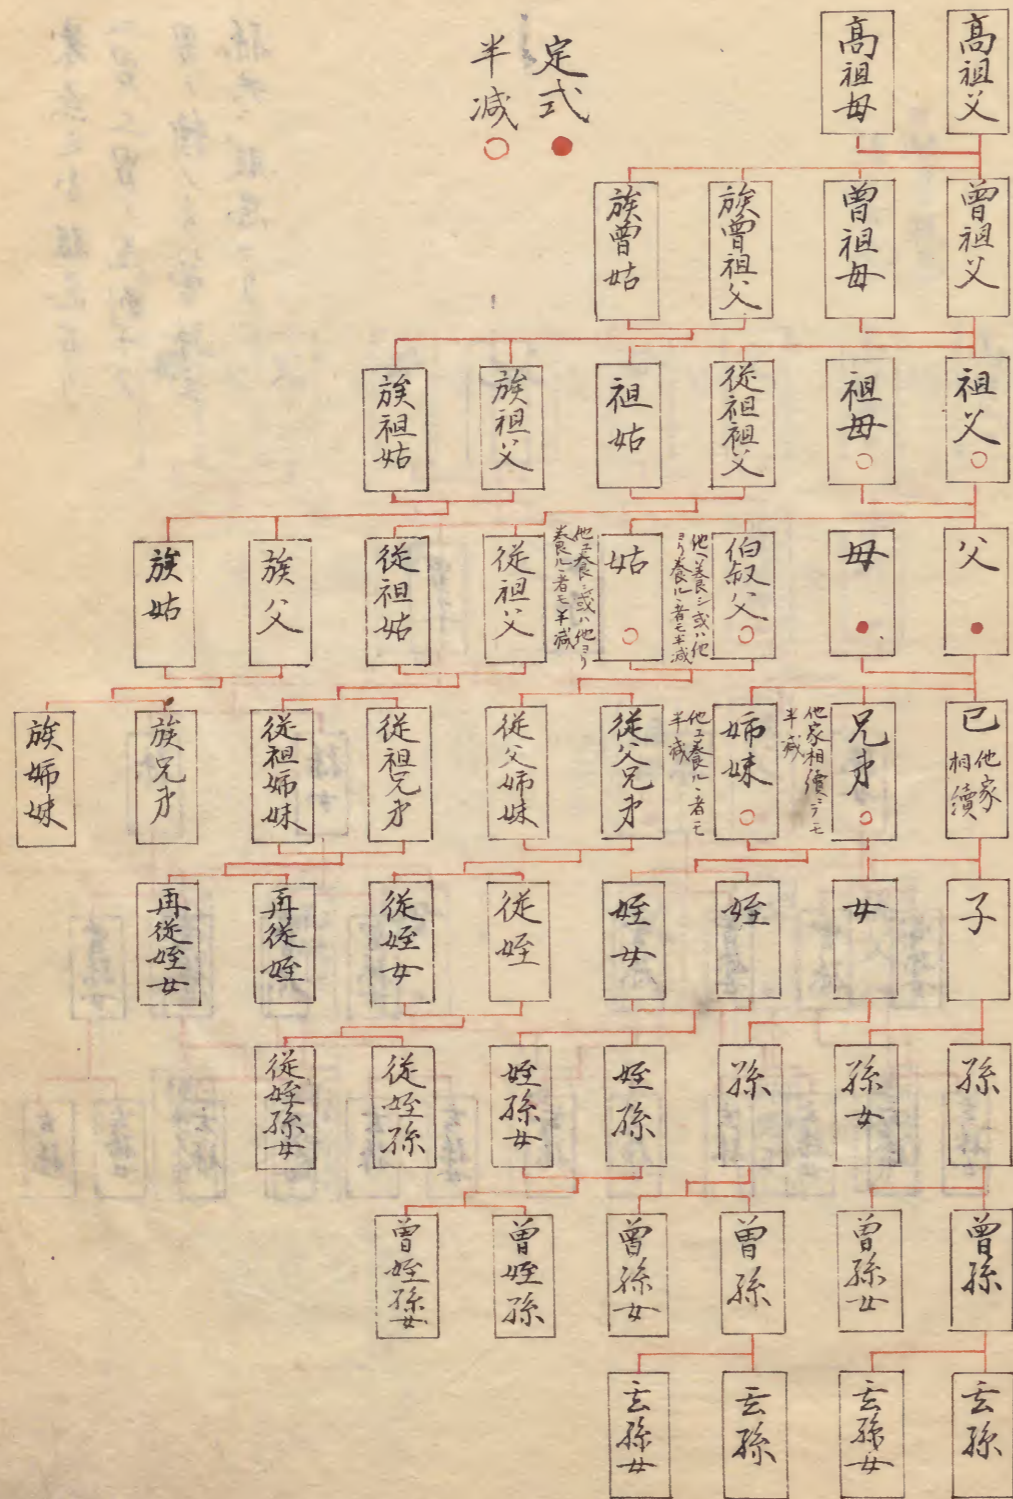 高祖父
高祖母
定式
半減
曽祖父
曽祖母
族曽祖父
族曽姑
祖父
祖母
従祖祖父
祖姑
族祖父
族祖姑
父
母
伯叔父
他ヘ養シ或ハ他
ヨリ養ルヽ者モ半減
姑
他エ養シ或ハ他ヨリ
養ルヽ者モ半減
従祖父
従祖姑
族父
族姑
己
他家
相續
兄弟
他家相續ニテモ
半減
姉妹
他エ養ルヽ者モ
半減
従父兄弟
従父姉妹
従祖兄弟
従祖姉妹
族兄弟
族姉妹
子
女
姪
姪女
従姪
従姪女
再従姪
再従姪女
孫
孫女
孫
姪孫
姪孫女
従姪孫
従姪孫女
曽孫
曽孫女
曽孫
曽孫女
曽姪孫
曽姪孫女
玄孫
玄孫女
玄孫
玄孫女